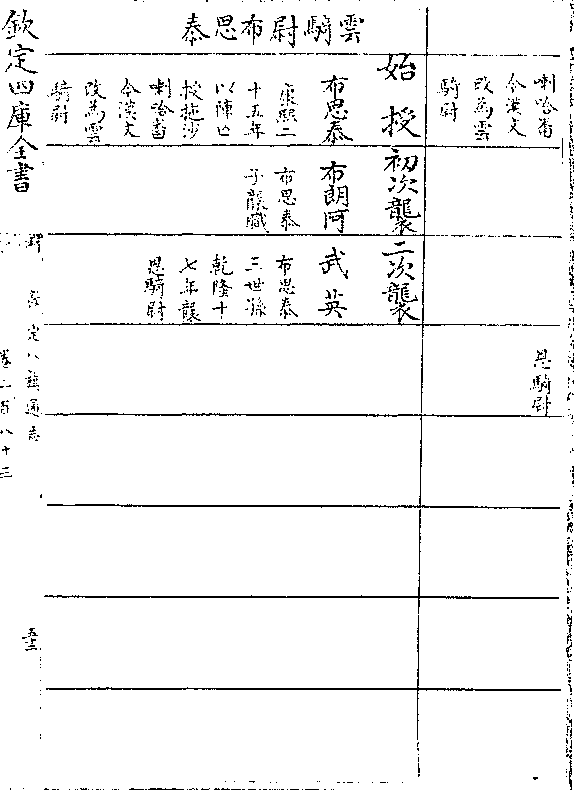 喇哈畨
今漢文
改為雲
騎尉
恩騎尉
雲騎尉布思泰
始授
布思泰
康熙二
十五年
以陣亡
授拖沙
喇哈畨
今漢文
改為雲
騎尉
初次襲
布朗阿
布思泰
子襲職
二次襲
武英
布思泰
三世孫
乾隆十
七年襲
恩騎尉
欽定四庫全書
欽定八旗通志
卷二百八十三